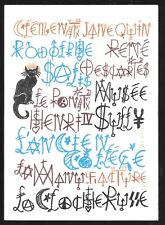 CLEMENT JANEQUIN
RODOLPHE RENÉ
SALIS DESCARTES
LE PONT MUSÉE
HENRI IV SULLY
L'ANCIEN
COLLÈGE
LA MANUFACTURE
LA COCHERIE